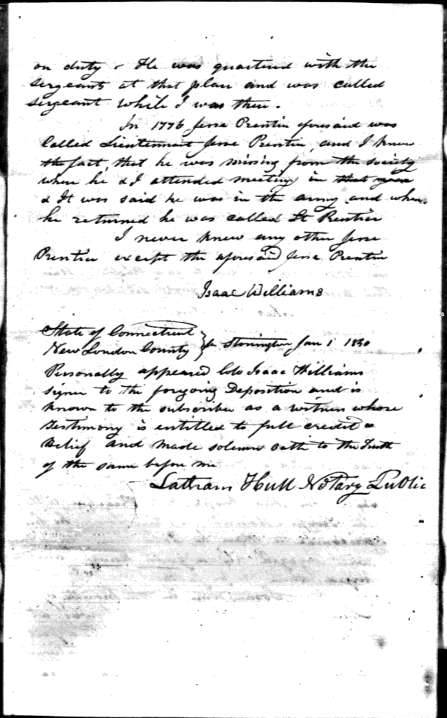 on duty - He was quartered with the
sergeants at that place and was called
sergeant while I was there.
In 1776 Jesse Prentice aforesaid was
Called Lieutenant Jesse Prentice, and I knew
the fact, that he was missing from the society
where he & I attended meeting in that year
& It was said he was in the army and when
he returned he was called Lt Prentice
I never knew any other Jesse
Prentice except the aforesaid Jesse Prentice
Isaac Williams
State of Connecticut
New London County } Stonington Jan 1 18
Personally appeared Isaac Williams
signer to the forgoing Deposition and is
known to the subscriber as a witness whose
testimony is entitled to full credit &
Belief and made solemn oath to the truth
of the same before me
Latham Hull Notary Public